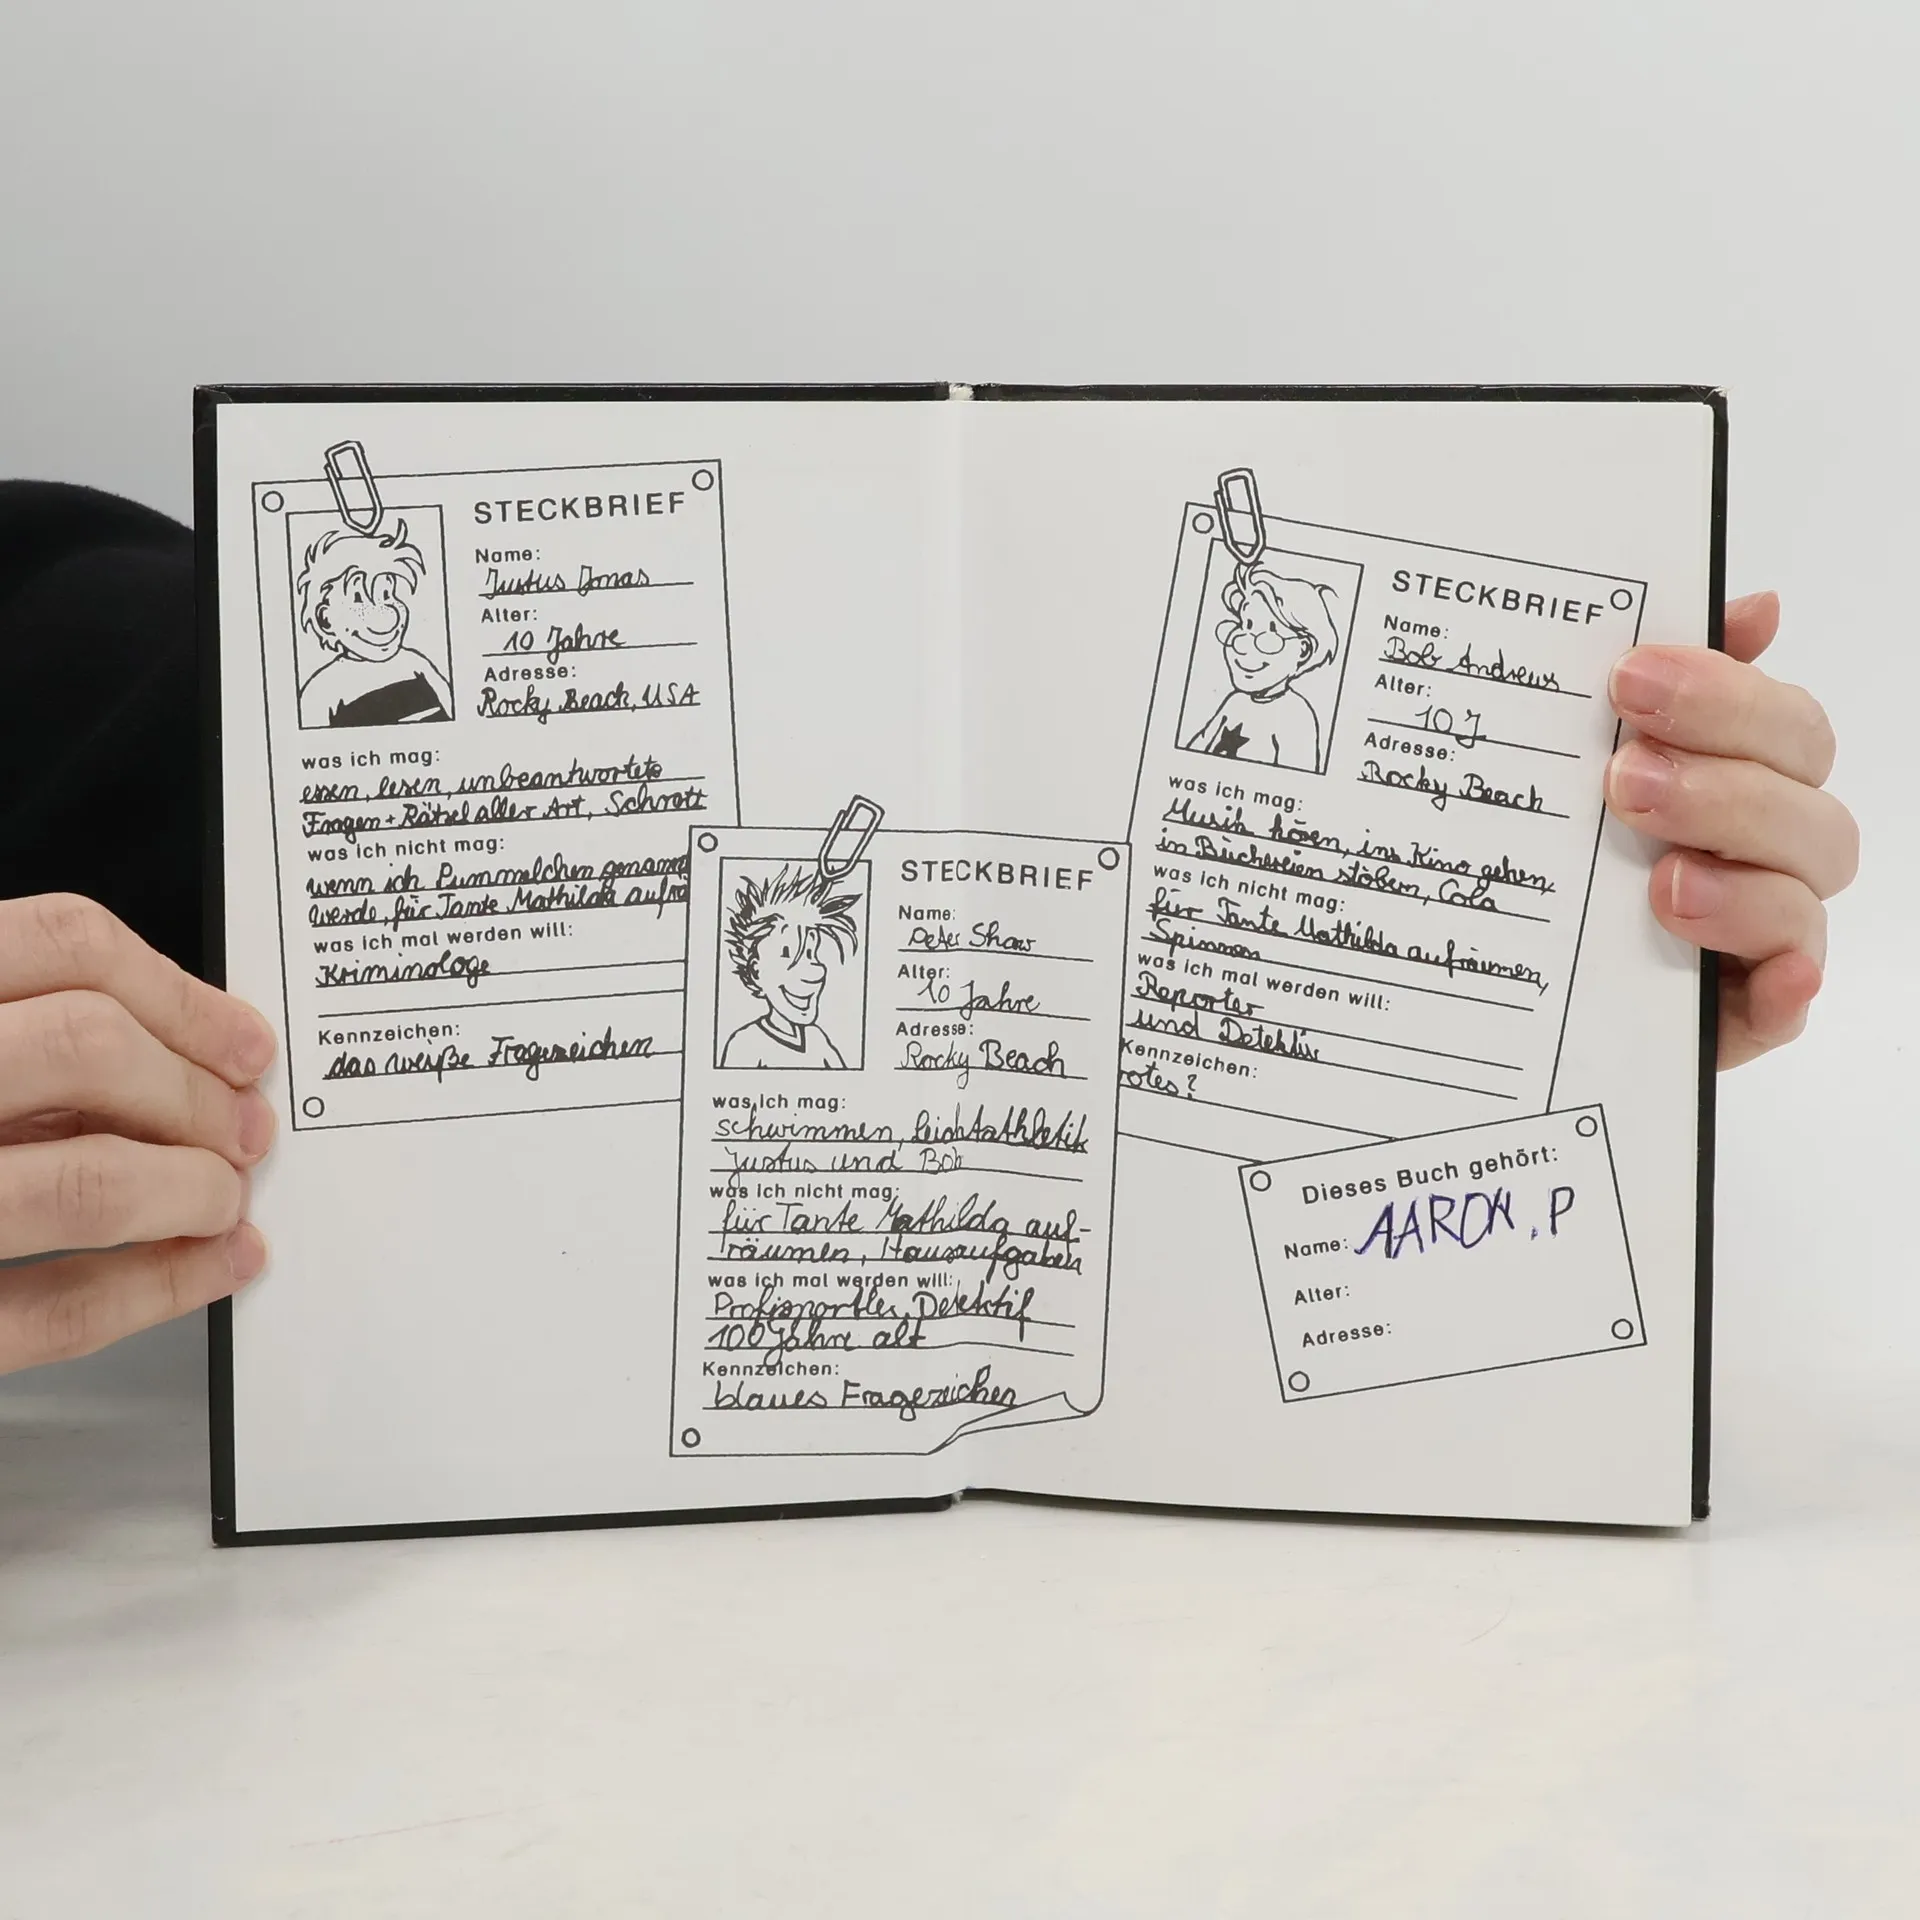 STECKBRIEF
Name:
Justus Jonas
Alter:
10 Jahre
Adresse:
Rocky Beach, USA
was ich mag:
essen, lesen, unbeantwortete
Fragen + Rätsel aller Art, Schrott
was ich nicht mag:
wenn ich Pummelchen genannt
werde, für Tante Mathilda aufrä
was ich mal werden will:
Kriminologe
Kennzeichen:
das weiße Fragezeichen
STECKBRIEF
Name:
Peter Shaw
Alter:
10 Jahre
Adresse:
Rocky Beach
was ich mag:
schwimmen, Leichtathletik
Justus und Bob
was ich nicht mag:
für Tante Mathilda auf-
räumen, Hausaufgaben
was ich mal werden will:
Profisportler, Detektif
100 Jahre alt
Kennzeichen:
blaues Fragezeichen
STECKBRIEF
Name:
Bob Andrews
Alter:
10 J
Adresse:
Rocky Beach
was ich mag:
Musik hören, ins Kino gehen,
in Büchereien stöbern, Cola
was ich nicht mag:
für Tante Mathilda aufräumen,
Spinnen
was ich mal werden will:
Reporter
und Detektiv
Kennzeichen:
rotes ?
Dieses Buch gehört:
Name: AARON.P
Alter:
Adresse: